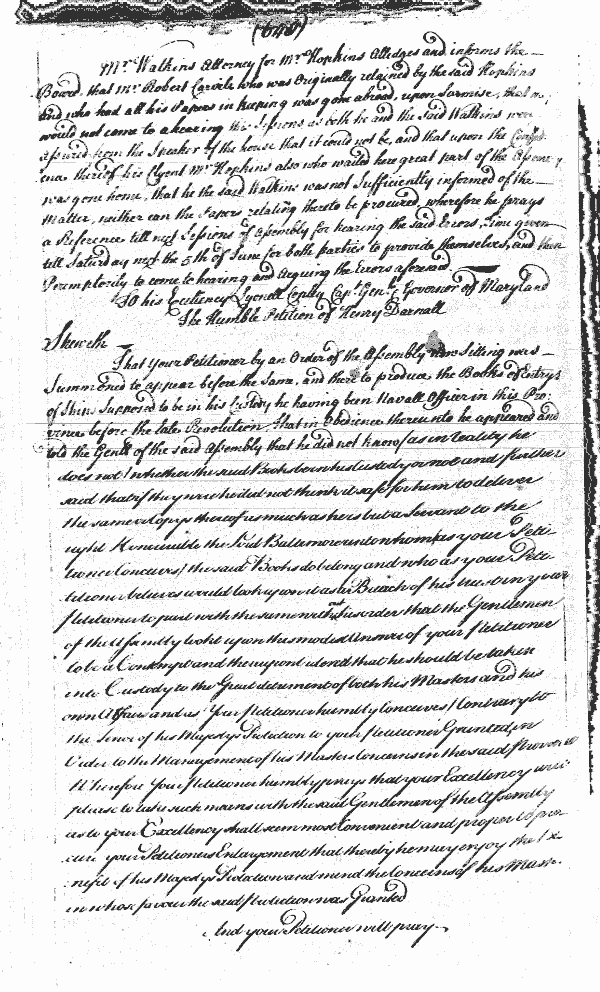 (640)
Mr. Watkins Attorney for Mr. Hopkins Alledges and informs the
Board, that Mr. Robert Carvile who was Originally retained by the said Hopkins
and who had all his Papers in keeping was gone abroad, upon Surmise, that
would not come to a hearing this Sessions as both he and the said Watkins were
assured from the Speaker of the house that it could not be, and that upon the
thereof his Clyent Mr. Hopkins also who waited here great part of the Assembly
was gone home, that he the said Watkins was not Sufficiently informed of the
Matter, neither can the Papers relating thereto be procured, wherefore he prays
a Reference till next Sessions of Assembly for hearing the said Errors, time given
till Saturday next the 5th of June for both parties to provide themselves, and then
Premptorily to come to hearing and arguing the Errors aforesaid
To his Excellency Lyonell Copley Capt. Genl. Governor of Maryland
The Humble Petition of Henry Darnall
Sheweth
That Your Petitioner by an Order of the Assembly now Sitting was
Summoned to appear before the Same, and there to produce the Books of Entrys
of Ships Supposed to be in his Custody he having been Navall Officer in this Pro:
vince before the late Revolution, that in obedience thereunto he appeared and
told the Gentl. of the said Assembly that he did not know (as in reality he
does not) whether the said Books been in his Custody or not and further
said that if they were he did not think it safe for him to deliver
the same or Copys thereof as much as he is but a Servant to the
right Honourable the Lord Baltemore unto whom (as your Peti-
tioner Conceives) the said Books do belong and who as your Peti-
tioner believes would look upon it as a Breach of his trust in your
Petitioner to part with the same without his order that the Gentlemen
of the Assembly lookt upon the modest Answer of your Petitioner
to be a Contempt and thereupon ordered that he should be taken
into Custody to the Great detriment of both his Masters and his
own Affairs and as Your Petitioner humbly Conceives Contrary to
the Tenor of his Majestys Protection to your Petitioner Granted in
Order to the Management of his Masters Concerns in the said Province
Wherefore Your Petitioner humbly prays that your Excellency will
please to use such means with the said Gentlemen of the Assembly
as to your Excellency shall seem most Convenient and proper to pro
cure your Petitioners Enlargement that thereby he may enjoy the Be
nefit of his Majestys Protection and mend the Concerns of his Master
in whose favour the said Protection was Granted
And your Petitioner will pray